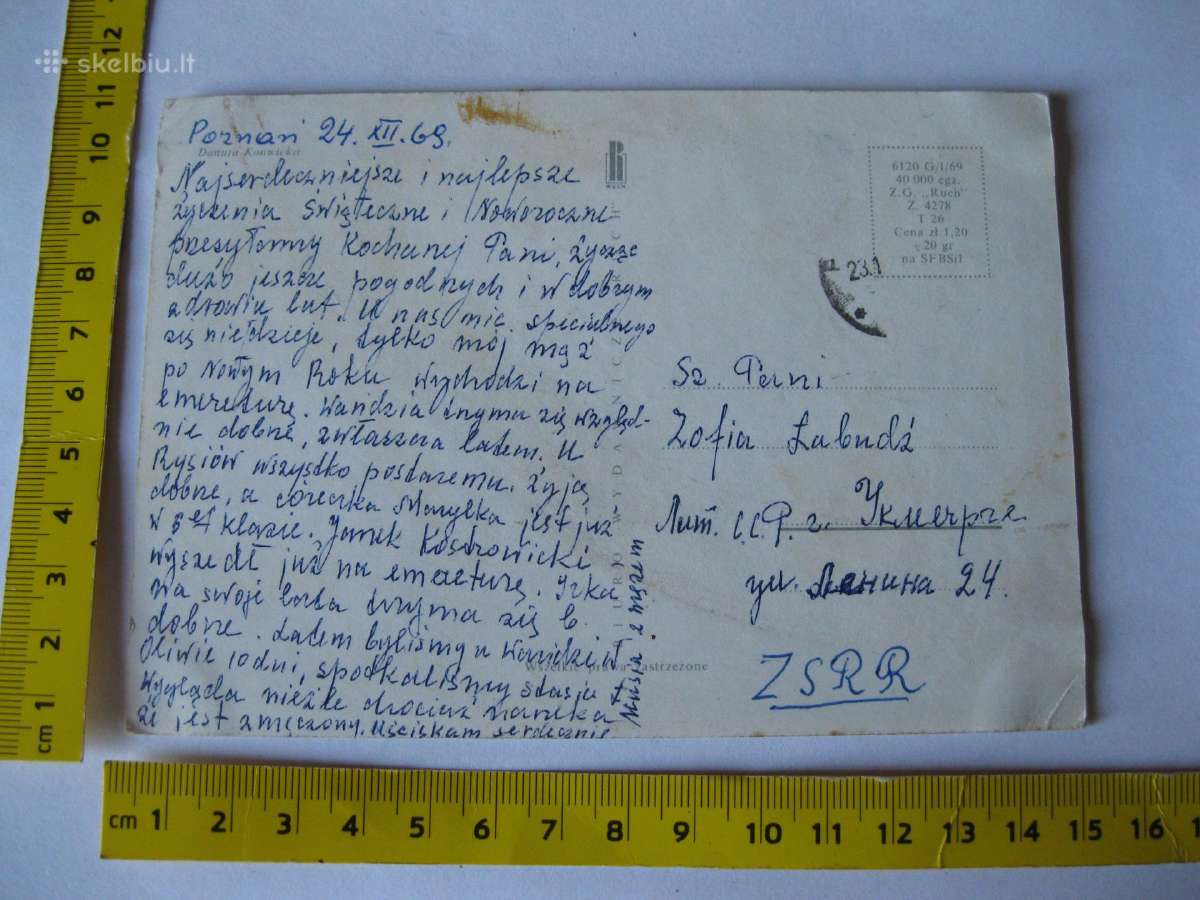 skelbiu.lt
Poznań 24.XII.69.
Danuta Konwicka
Najserdeczniejsze i najlepsze
życzenia Świąteczne i Noworoczne
przesyłamy Kochanej Pani, życząc
dużo jeszcze pogodnych i w dobrym
zdrowiu lat. U nas nic specialnego
się nie dzieje, tylko mój mąż
po Nowym Roku wychodzi na
emereturę. Wandzia trzyma się względ-
nie dobrze, zwłaszcza latem. U
Rysiów wszystko postaremu. Żyją
dobrze, a córeczka Marylka jest już
w 5ej klasie. Janek Kostrowicki
wyszedł już na emereturę. Irka
na swoje lata trzyma się b.
dobrze. Latem byliśmy u Wandzi w
Oliwie 10 dni, spotkaliśmy Stasia
Wygląda nieźle chociaż narzeka
że jest zmęczony. Uściskam serdecznie
z mężem
Wszelkie prawa zastrzeżone
RUCH
6120 G/I/69
40 000 egz.
Z.G. „Ruch"
Z. 4278
T 26
Cena zł 1,20
+20 gr
na SFBSiI
23.1
Sz. Pani
Zofia Łabudź
Лит. С.С.Р. г. Укмерге
ул. Ленина 24.
ZSRR
12
11
10
9
8
7
6
5
4
3
2
1
cm
cm 1 2 3 4 5 6 7 8 9 10 11 12 13 14 15 16 1